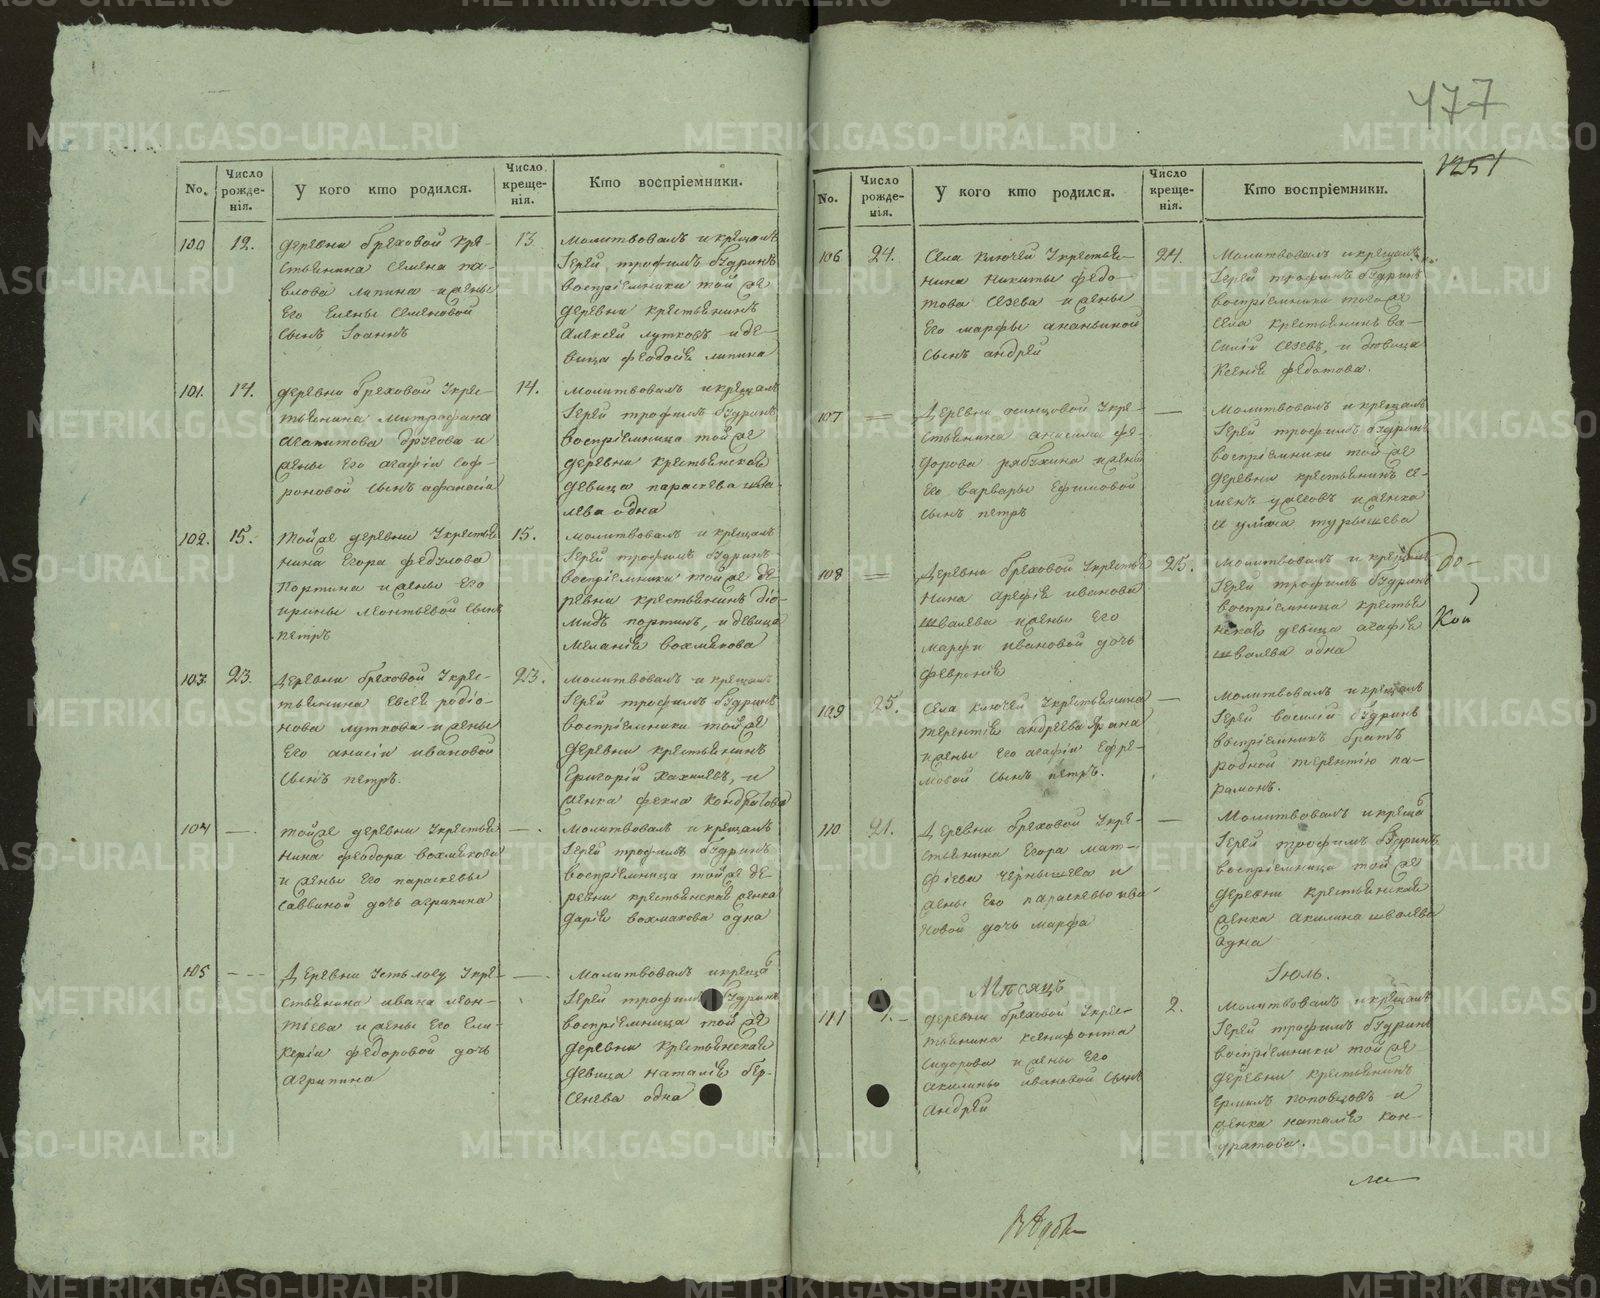 477
1251
No.
Число рожде-нія.
У кого кто родился.
Число креще-нія.
Кто воспріемники.
100
12.
деревни Бреховой кре-
стьянина Семена па-
влова Липина и жены
Его Елены Семеновой
сынъ Іоаннъ
13
Молитвовалъ и крещалъ
Іерей трофимъ Будринъ
воспріемники той же
деревни крестьянинъ
Алексей лутковъ и де-
вица феодосія липина
101.
14.
деревни Бреховой Укрес-
тьянина митрофана
Агапитова
жены Его агафіи Соф-
роновой сынъ афанасіи
14.
молитвовалъ и крещалъ
Іерей трофимъ Будринъ
воспріемница той же
деревни крестьянской
девица параскева шва-
лева одна
102.
15.
той же деревни Укрестья
нина Егора федулова
Портина и жены Его
ирины леонтьевой сынъ
петръ
15.
молитвовалъ и крещалъ
Іерей трофимъ Будринъ
воспріемники той же де-
ревни крестьянинъ діо-
мидъ портинъ, и девица
Меланія вохмякова
103.
23.
Деревни Бреховой Укрес-
тьянина Евсея родіо-
нова луткова и жены
Его анисіи ивановой
сынъ петръ.
23.
молитвовалъ и крещалъ
Іерей трофимъ Будринъ
воспріемники той же
деревни крестьянинъ
Григорій и
женка фекла Кондратова
104
— .
той же деревни Укрестья
нина феодора вохмякова
и жены Его параскевы
Саввиной дочь агрипина
— .
Молитвовалъ и крещалъ
Іерей трофимъ Будринъ
воспріемница той же де-
ревни крестьянская женка
дарія вохмакова одна
105
- - -
Деревни Усть логу Укре-
стьянина ивана леон-
тьева и жены Его Гли-
керіи федоровой дочь
агрипина
— .
молитвовалъ и креща
Іерей трофимъ Будринъ
воспріемница той же
деревни крестьянская
девица наталія бер-
сенева одна
No.
Число рожде-нія.
У кого кто родился.
Число креще-нія.
Кто воспріемники.
106
24.
Села ключей Укрестья-
нина никиты федо-
това Сезева и жены
Его марфы ананьиной
сынъ андрей
24.
Молитвовалъ и крещалъ
Іерей трофимъ Будринъ
воспріемники того же
села крестьянинъ ва-
силій Сезевъ, и девица
Ксенія федотова.
107
=
Деревни Укре-
стьянина анисима фе-
дорова рябухина и жены
Его варвары Ефимовой
сынъ петръ
—
Молитвовалъ и крещалъ
Іерей трофимъ Будринъ
воспріемники той же
деревни крестьянинъ се-
менъ ужеговъ и женка
турышева
108
=
Деревни Бреховой Укресть
янина арефія иванова
швалева и жены Его
марфи ивановой дочь
февронія
25.
молитвовалъ и крещалъ
Іерей трофимъ Будринъ
воспріемница крестья
нская девица агафія
швалева одна
до-
Кои
109
25.
села ключей Укрестьянина
терентія андреева
и жены Его агафіи Ефре-
мовой сынъ петръ.
—
Молитвовалъ и крещалъ
Іерей василій Будринъ
воспріемникъ братъ
родной терентію па-
рамонъ.
110
21.
Деревни Бреховой Укре-
стьянина Егора мат-
фіева чернышева и
жены Его параскевы ива
новой дочь марфа
—
Молитвовалъ и креща
Іерей трофимъ Будринъ
воспріемница той же
деревни крестьянская
женка акилина швалева
одна
Мѣсяцъ
Іюль.
111
1.-
деревни Бреховой Укрес-
тьянина ксенифонта
сидорова и жены Его
акилины ивановой сынъ
андрей
2.
молитвовалъ и крещалъ
Іерей трофимъ Будринъ
воспріемники той же
деревни крестьянинъ
Ермилъ поповцовъ и
женка наталія кон-
дратова.